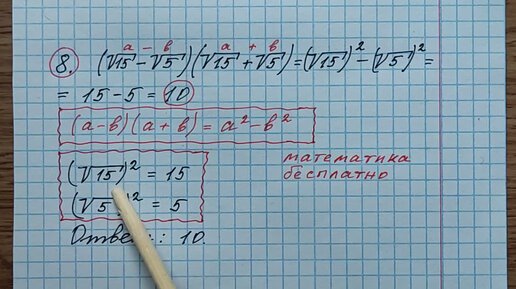 a – в a + в
8. (√15 – √5)(√15 + √5) = (√15)² – (√5)² =
= 15 – 5 = 10
(a – в)(a + в) = a² – в²
(√15)² = 15
(√5)² = 5
математика
бесплатно
Ответ: 10.